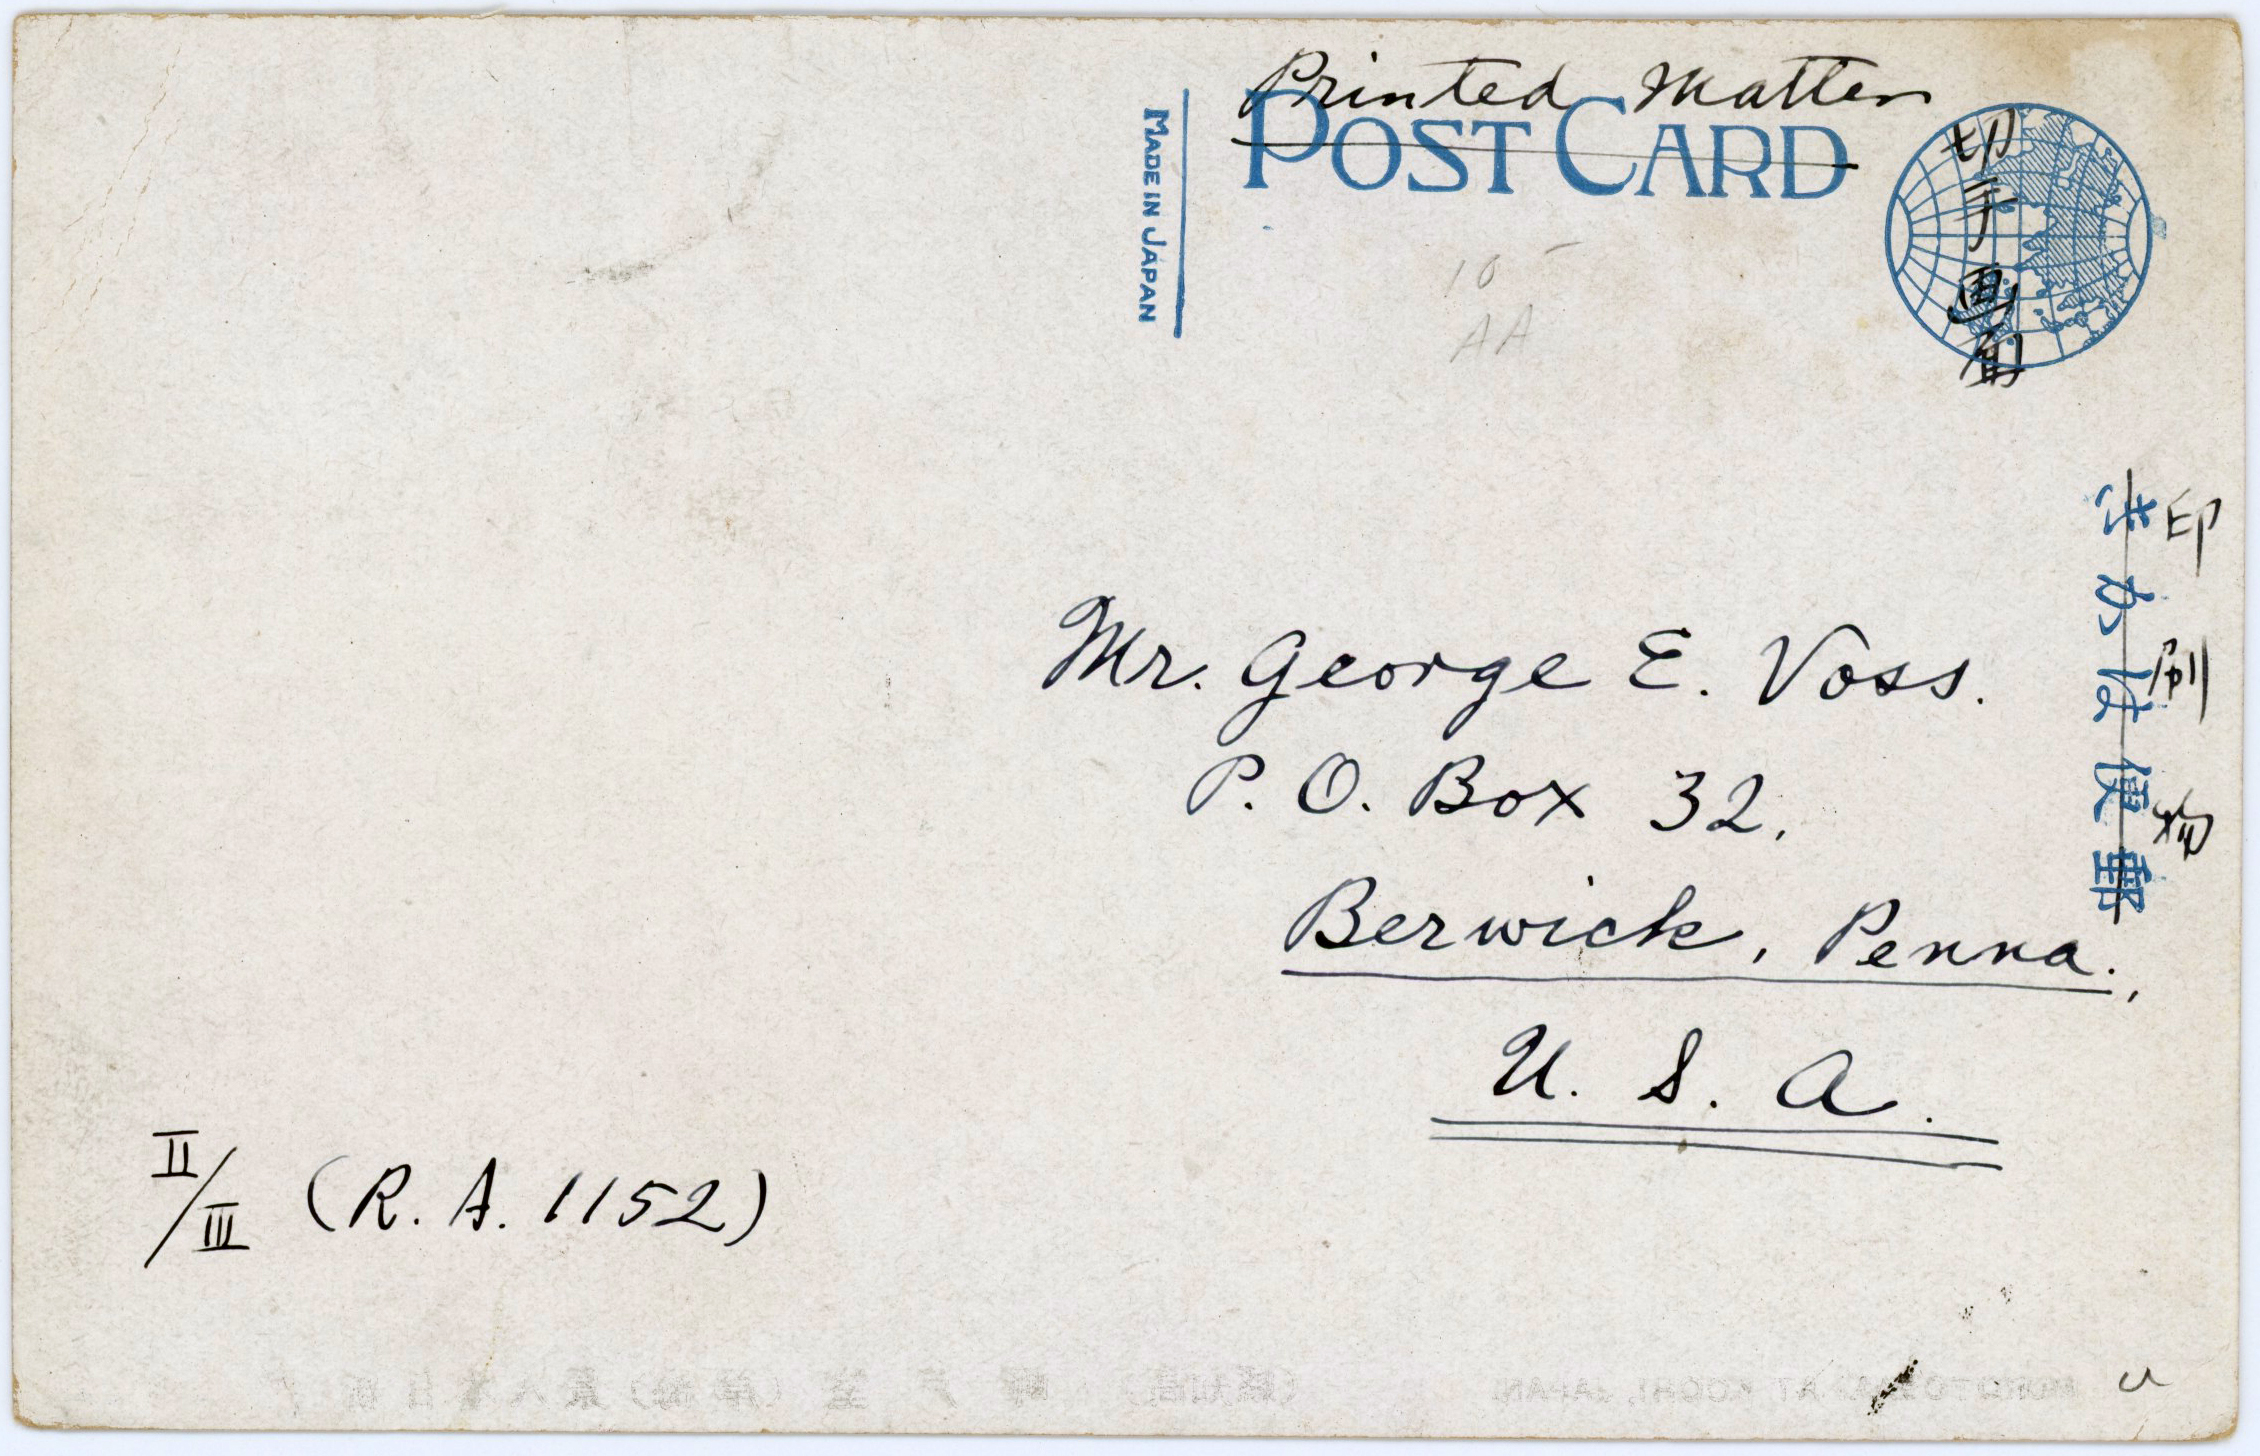 Printed Matter
POST CARD
MADE IN JAPAN
10 -
AA
郵便はがき
印刷物
Mr. George E. Voss.
P. O. Box 32,
Berwick, Penna.,
U. S. A.
II/III (R. A. 1152)